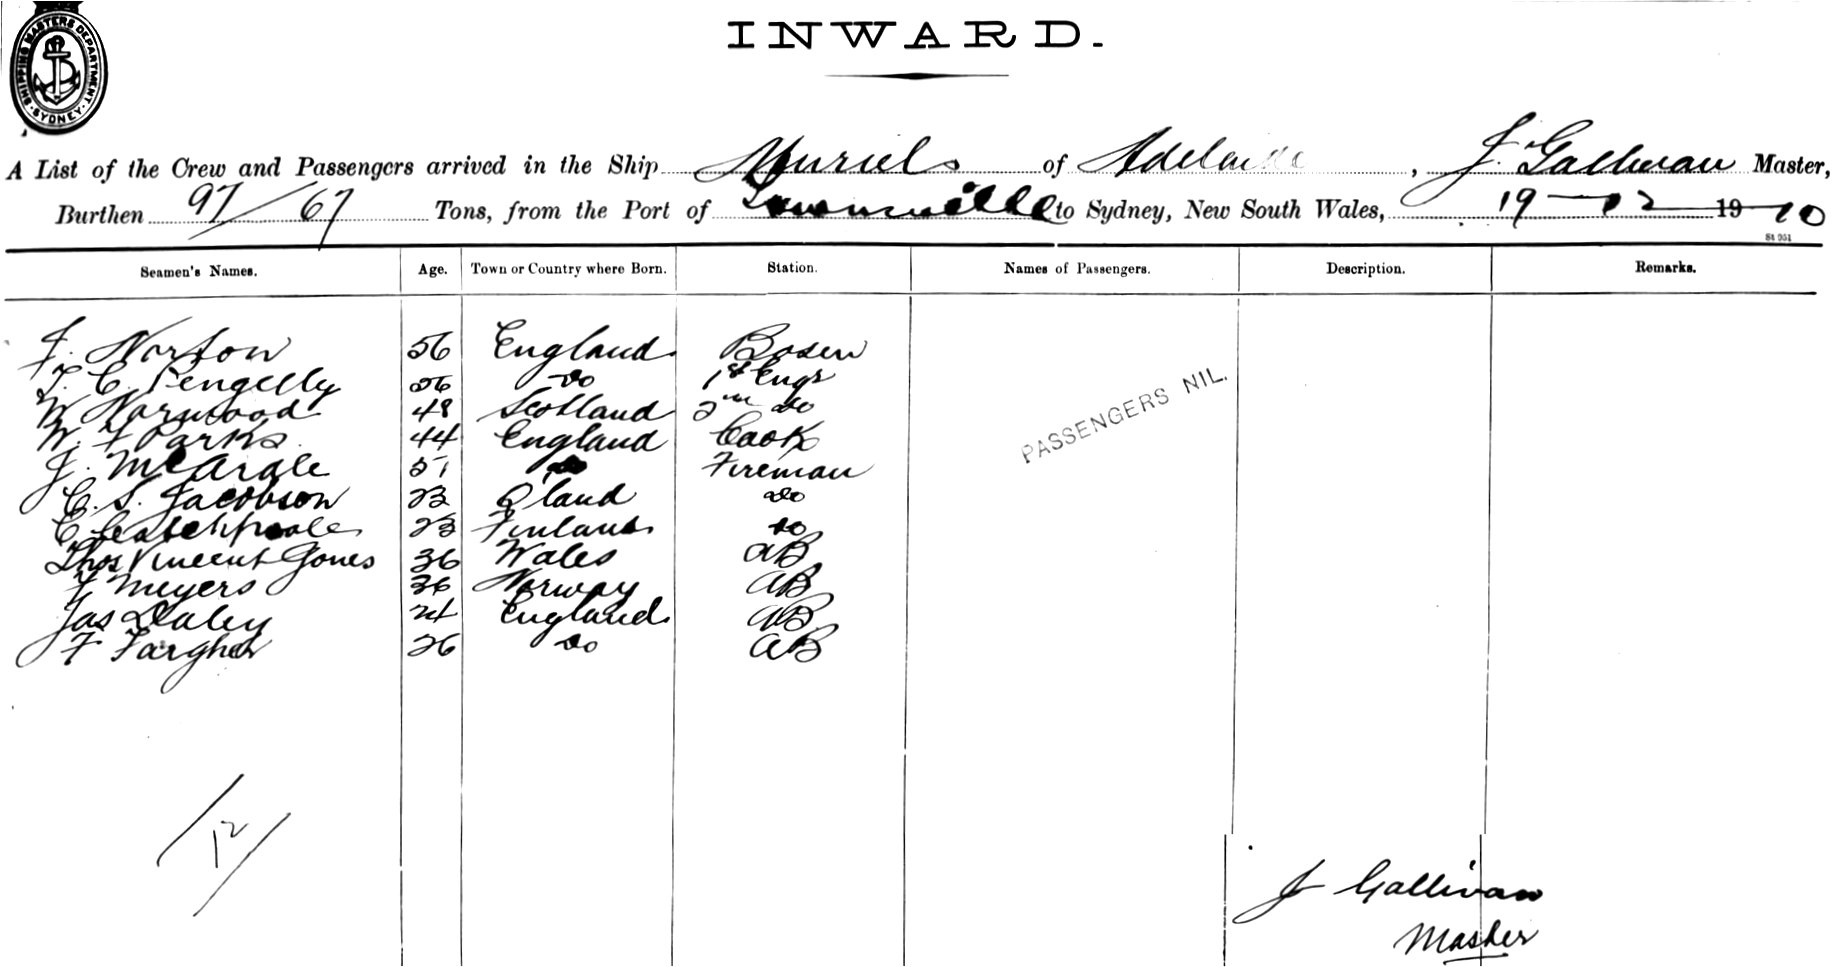 SHIPPING MASTERS DEPARTMENT
SYDNEY
INWARD.
A List of the Crew and Passengers arrived in the Ship Muriel of Adelaide, J. Gallivan Master,
Burthen 97/67 Tons, from the Port of to Sydney, New South Wales, 19-12 1910
St 951
Seamen's Names. Age. Town or Country where Born. Station. Names of Passengers. Description. Remarks.
J. Norton 56 England Bosen
T. C. Pengelly 56 do 1st Engr
W Norwood 48 Scotland 2nd do
W. F Parks 44 England Cook
J. McArdle 51 do Fireman
C. S. Jacobson 23 Qland do
C. 23 Finland do
Thos Vincent Jones 36 Wales AB
F Meyers 36 Norway AB
Jas Daley 24 England AB
F Fargher 26 do AB
PASSENGERS NIL.
12
J Gallivan
Master